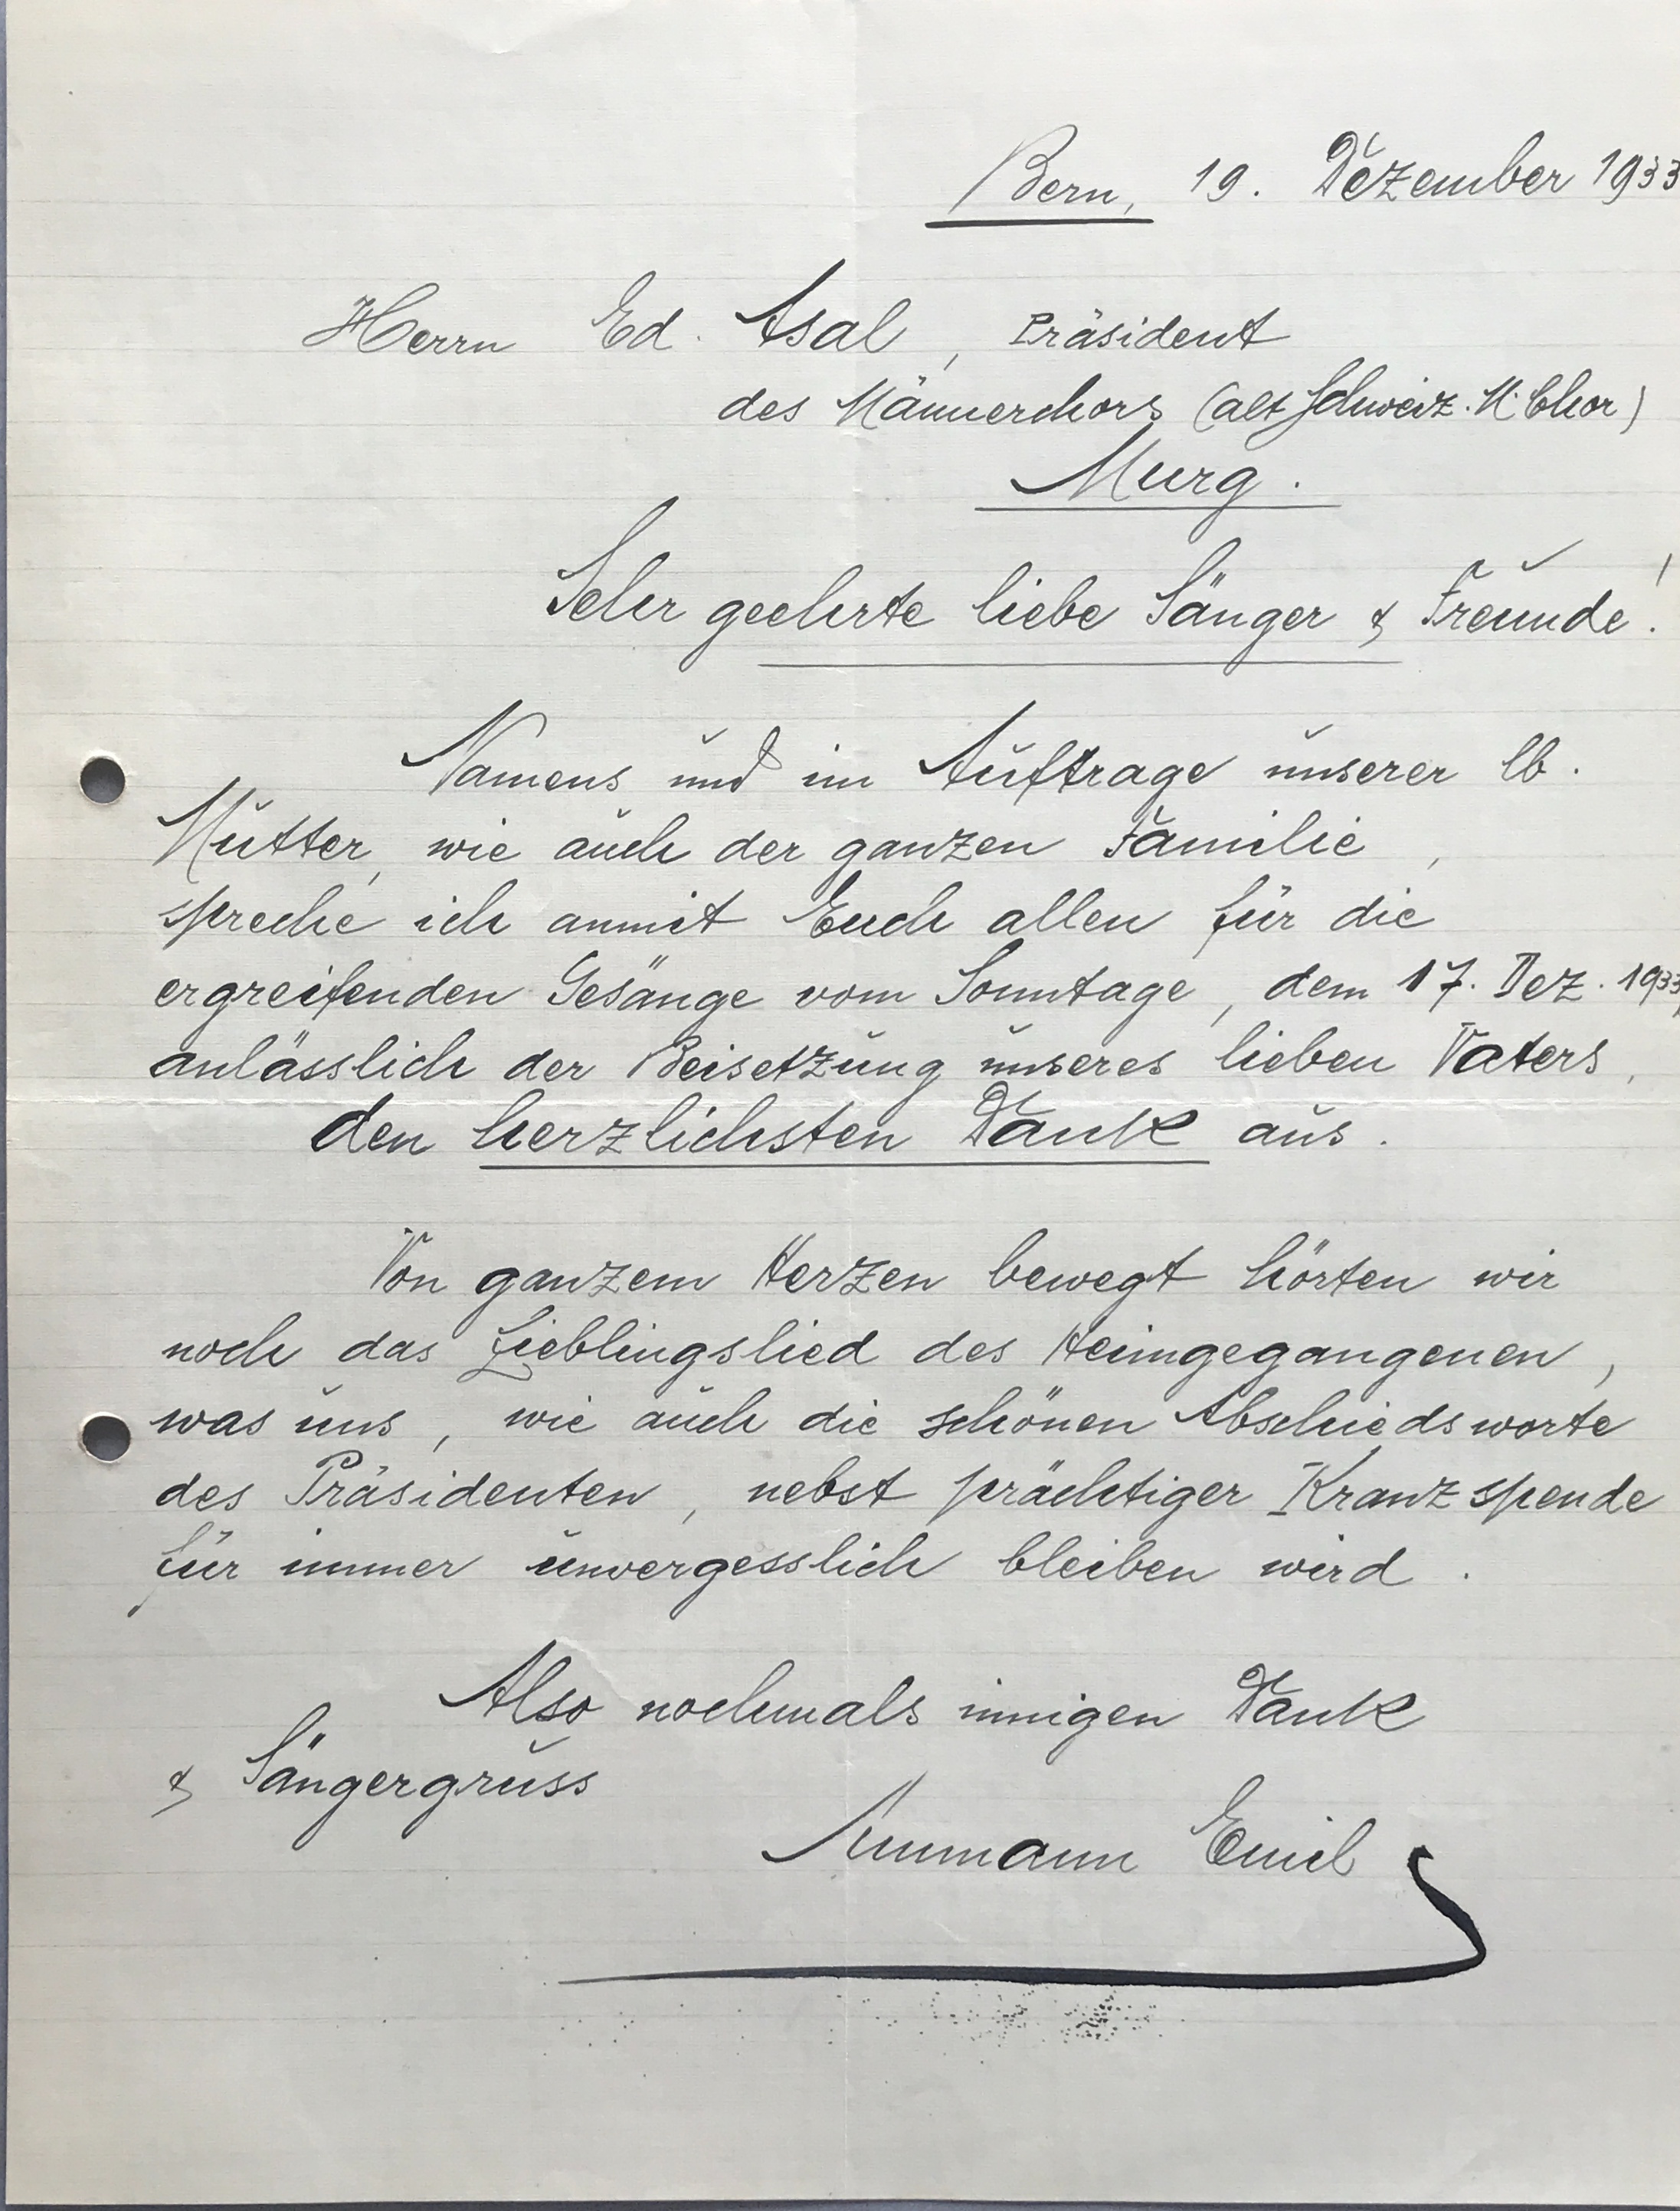 Bern, 19. Dezember 1933
Herrn Ed. Asal, Präsident
des Männerchors (alt Schweiz. M. Chor)
Murg.
Sehr geehrte liebe Sänger & Freunde!
Namens und im Auftrage unserer lb.
Mutter, wie auch der ganzen Familie,
spreche ich anmit Euch allen für die
ergreifenden Gesänge vom Sonntage, dem 17. Dez. 1933,
anlässlich der Beisetzung unseres lieben Vaters,
den herzlichsten Dank aus.
Von ganzem Herzen bewegt hörten wir
noch das Lieblingslied des Heimgegangenen,
was uns, wie auch die schönen Abschiedsworte
des Präsidenten, nebst prächtiger Kranzspende
für immer unvergesslich bleiben wird.
Also nochmals innigen Dank
& Sängergruss
Ammann Emil